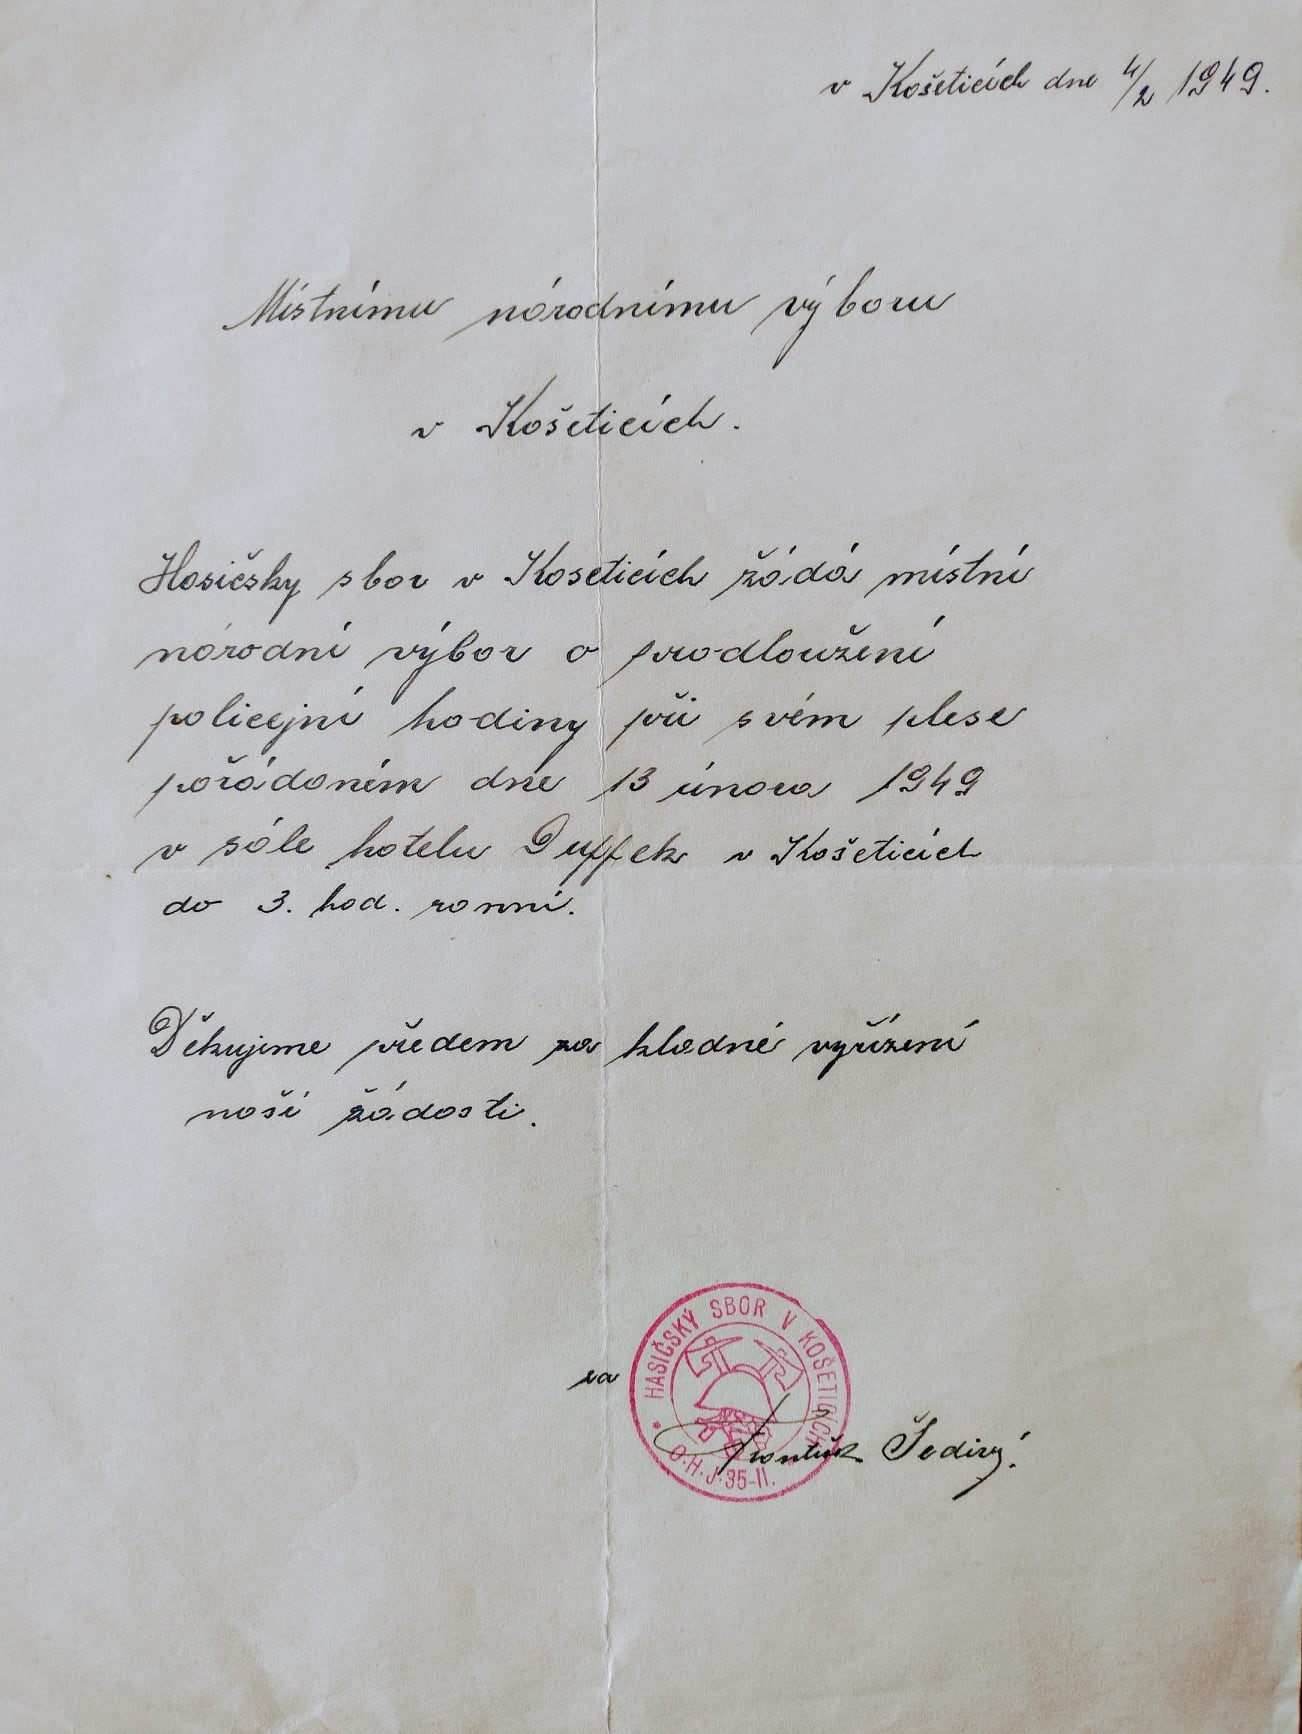 v Košeticích dne 4/2 1949.
Místnímu národnímu výboru
v Košeticích.
Hasičsky sbor v Koseticích žádá místní
národní výbor o prodloužení
policejní hodiny při svém plese
pořádaném dne 13 února 1949
v sále hotelu Duffek v Košeticích
do 3. hod. ranní.
Děkujeme předem za kladné vyřízení
naší žádosti.
za
HASIČSKÝ SBOR V KOŠETICÍCH
O.H.J. 35-II.
František Šedivý.